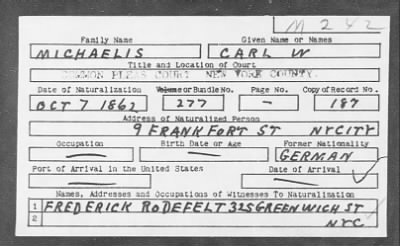 M 242
Family Name Given Name or Names
MICHAELIS CARL W
Title and Location of Court
COMMON PLEAS COURT NEW YORK COUNTY.
Date of Naturalization Volume or Bundle No. Page No. Copy of Record No.
OCT 7 1862 277 — 187
Address of Naturalized Person
9 FRANKFORT ST NYCITY
Occupation Birth Date or Age Former Nationality
— — GERMAN
Port of Arrival in the United States Date of Arrival
— —
Names, Addresses and Occupations of Witnesses To Naturalization
1 FREDERICK RODEFELT 325 GREENWICH ST
2 NYC